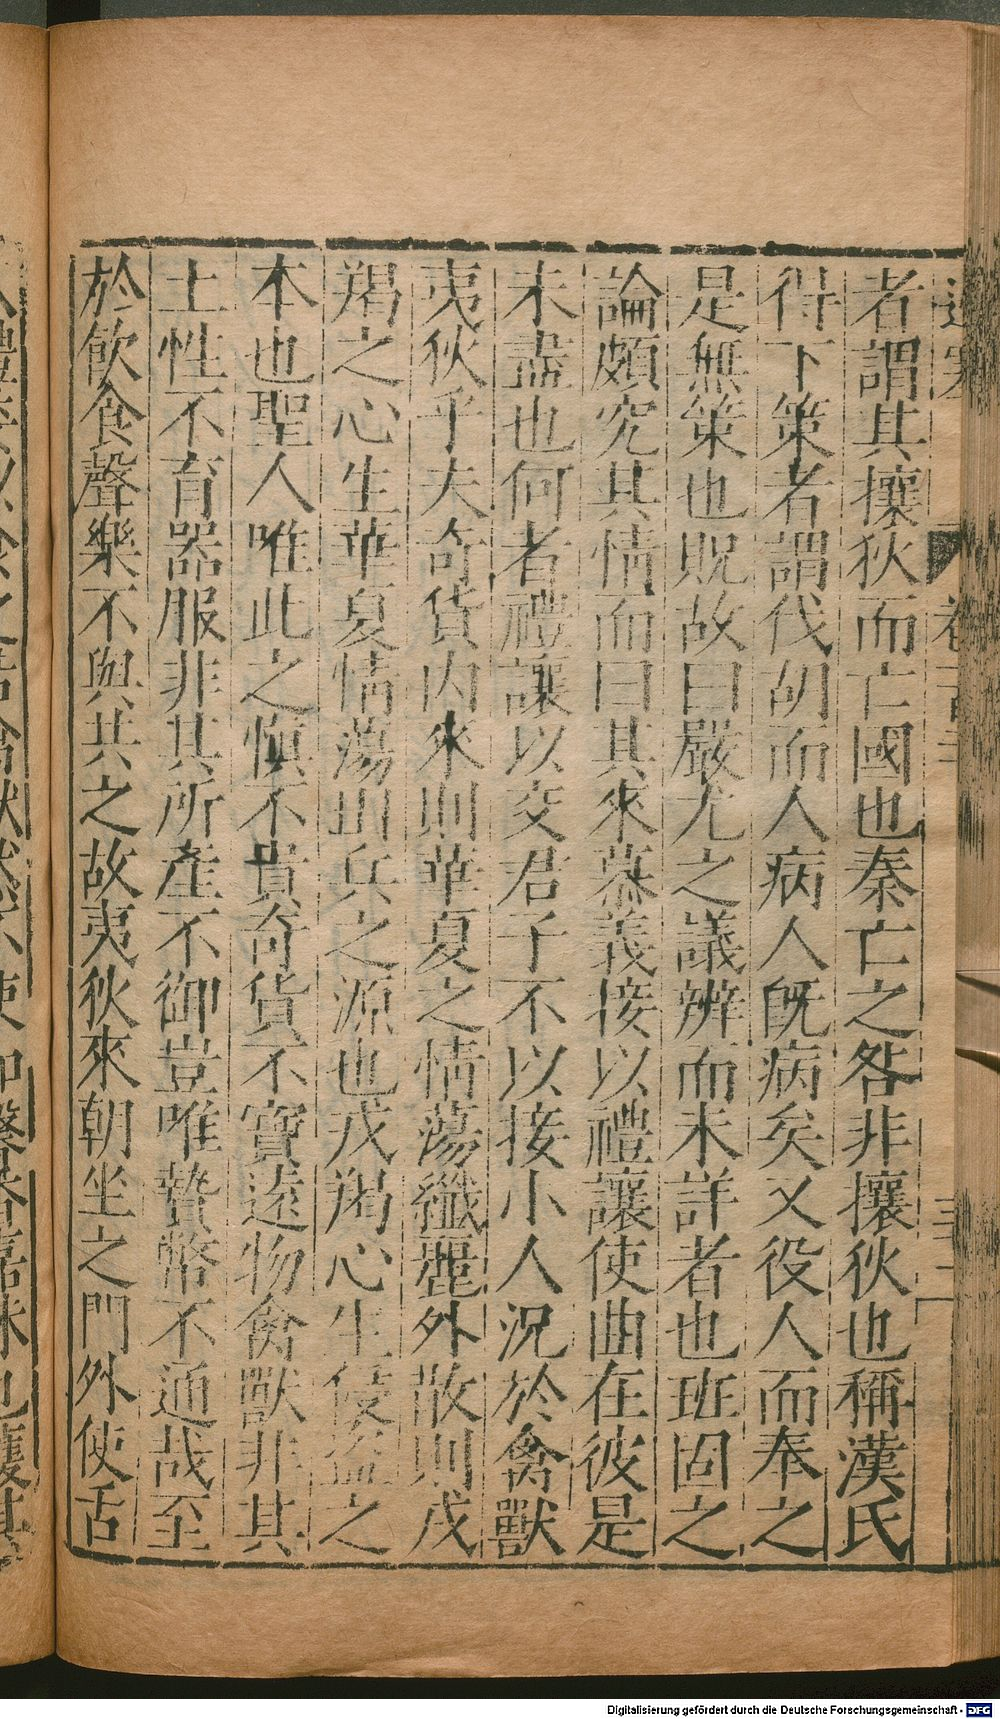 者謂其攘狄而亡國也秦亡之咎非攘狄也稱漢氏
得下策者謂伐胡而人病人既病矣又役人而奉之
是無策也貺故曰嚴尤之議辨而未詳者也班固之
論頗究其情而曰其來慕義接以禮讓使曲在彼是
未盡也何者禮讓以交君子不以接小人況於禽獸
夷狄乎夫奇貨内來則華夏之情蕩纎麗外散則戎
羯之心生華夏情蕩出兵之源也戎羯心生侵盜之
本也聖人唯此之慎不貴奇貨不寶遠物禽獸非其
土性不育器服非其所產不御豈唯贄幣不通哉至
於飲食聲樂不與共之故夷狄來朝坐之門外使舌
Digitalisierung gefördert durch die Deutsche Forschungsgemeinschaft - DFG